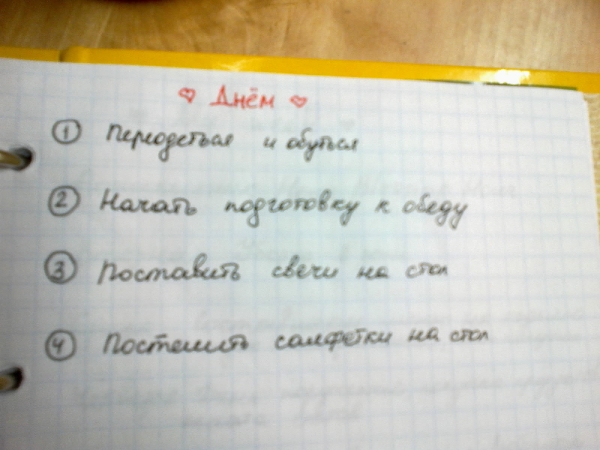 Днём
1 Переодеться и обуться
2 Начать подготовку к обеду
3 Поставить свечи на стол
4 Постелить салфетки на стол